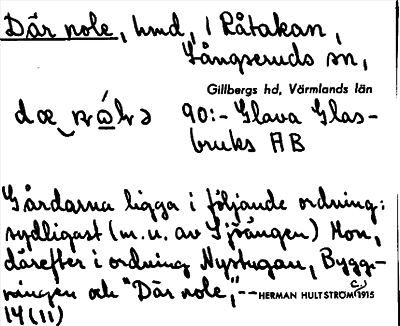 Där nole, hmd, i Råtakan,
Långseruds sn,
Gillbergs hd, Värmlands län
90:- Glava Glas-
bruks AB
Gårdarna ligga i följande ordning:
sydligast (m.u. av Sjöängen) Mon,
därefter i ordning Nystugan, Bygg-
ningen och "Där nole,"--
HERMAN HULTSTRÖM 1915
14(11)